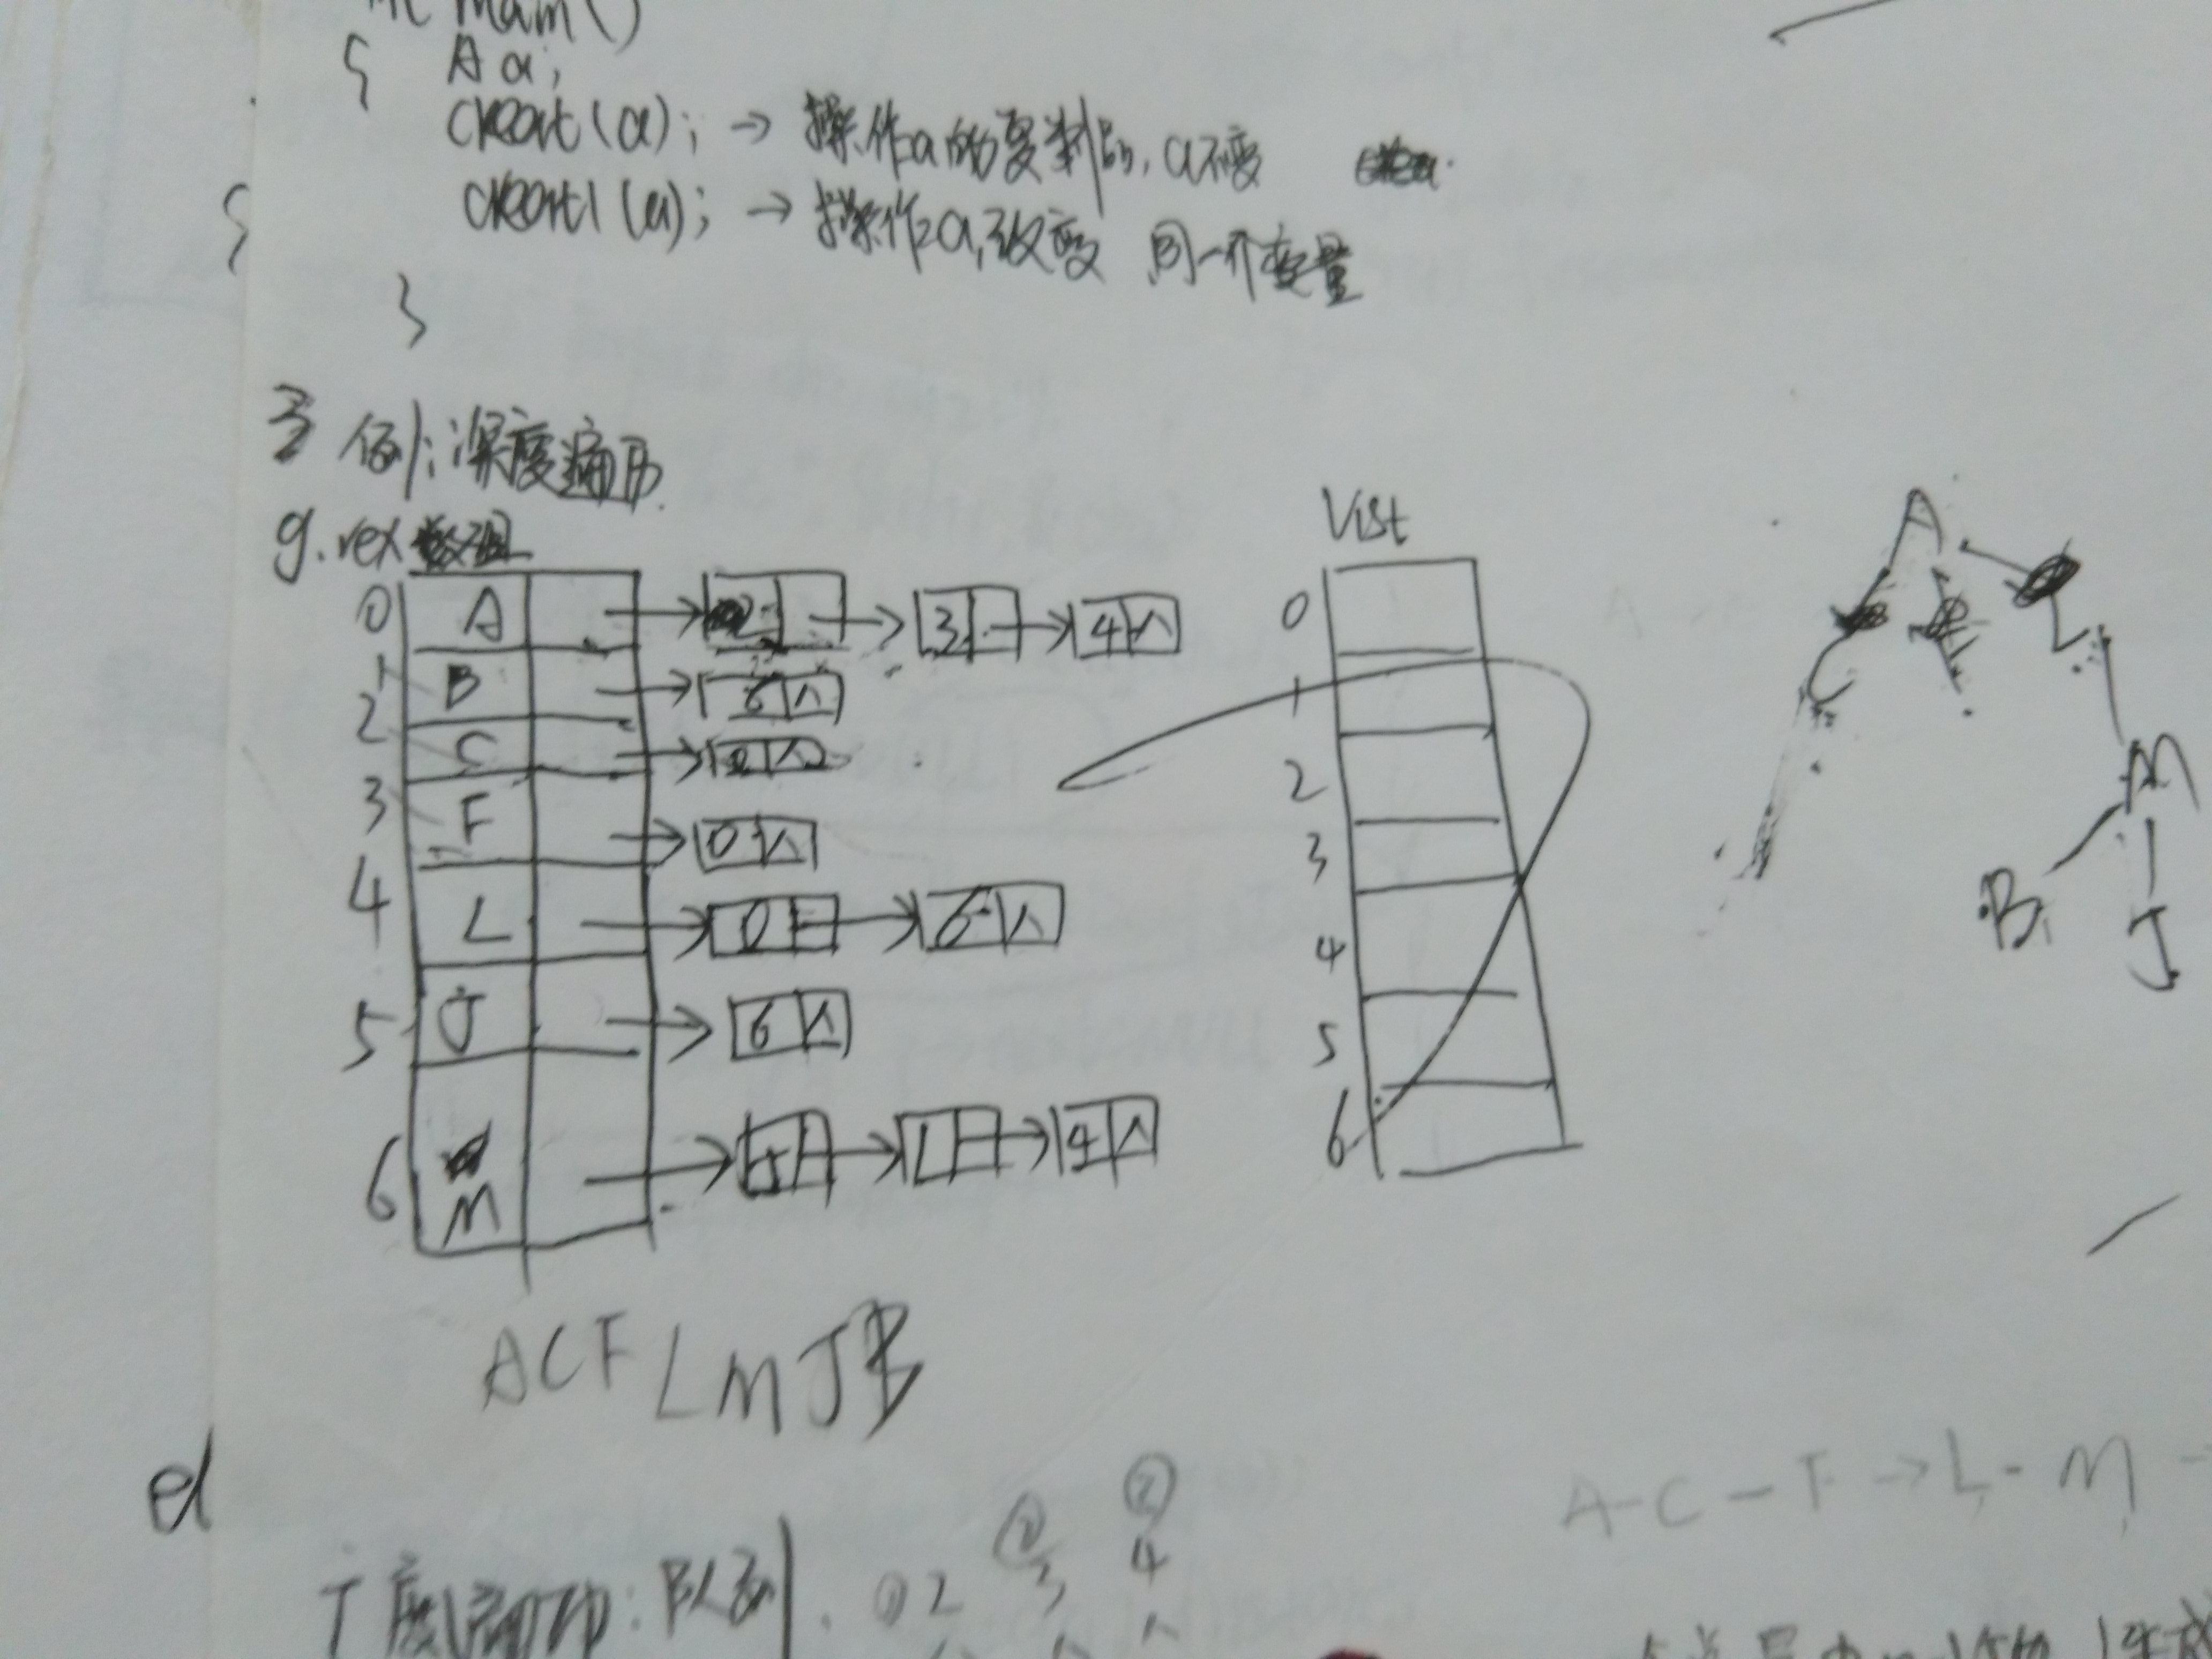 main()
{ A a;
creat(a); → 操作a的复制品, a不变
creat1(a); → 操作a,改变 同一个变量
}
例:深度遍历
g.vex数组
Vist
0 A → 2 → 3 → 4 ∧
1 B → 6 ∧
2 C → 0 ∧
3 F → 0 ∧
4 L → 0 → 6 ∧
5 J → 6 ∧
6 M → 5 → 1 → 4 ∧
0
1
2
3
4
5
6
A
C
L
M
B
J
ACFLMJB
A-C-F→L-M-
广度遍历:队列. ①2 3 ② 4